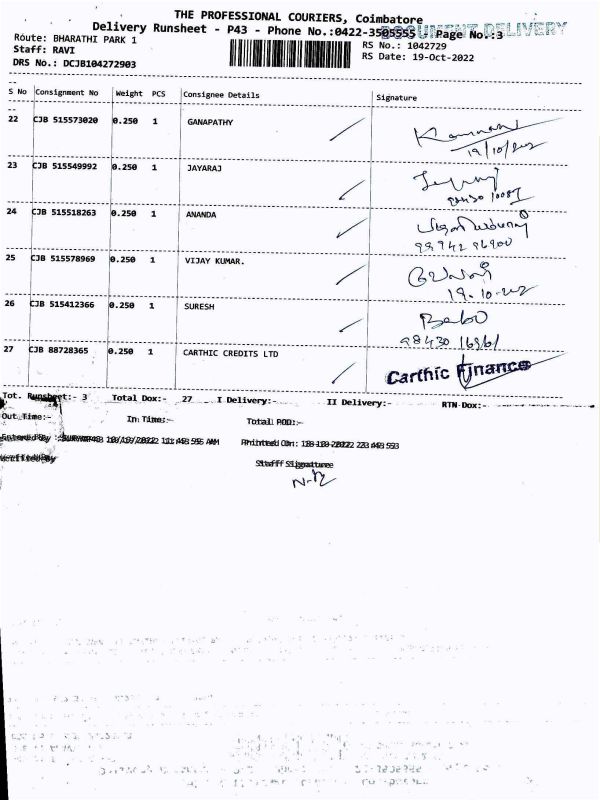 THE PROFESSIONAL COURIERS, Coimbatore
Delivery Runsheet - P43 - Phone No.:0422-3505555 Page No.:3
DOCUMENT DELIVERY
Route: BHARATHI PARK 1
RS No.: 1042729
Staff: RAVI
RS Date: 19-Oct-2022
DRS No.: DCJB104272903
S No Consignment No Weight PCS Consignee Details Signature
22 CJB 515573020 0.250 1 GANAPATHY
19/10/2022
23 CJB 515549992 0.250 1 JAYARAJ
24 CJB 515518263 0.250 1 ANANDA
99942 96900
25 CJB 515578969 0.250 1 VIJAY KUMAR.
19.10.202
26 CJB 515412366 0.250 1 SURESH
Babu
98430 16961
27 CJB 88728365 0.250 1 CARTHIC CREDITS LTD
Carthic Finance
Tot. Runsheet:- 3 Total Dox:- 27 I Delivery:- II Delivery:- RTN-Dox:-
Out Time:- In Time:- Total POD:-
Entered By
Printed On:
Verified By
Staff Signature